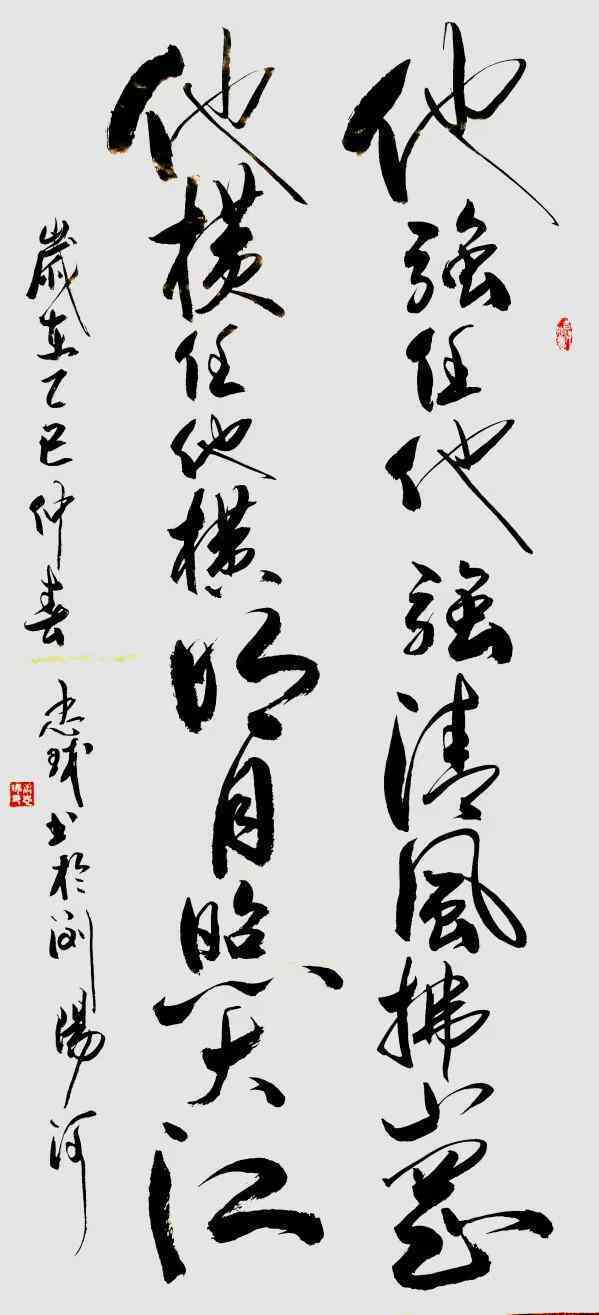 他強任他強清風拂山崗
他橫任他橫明月照大江
歲在乙巳仲春忠球书於浏陽河